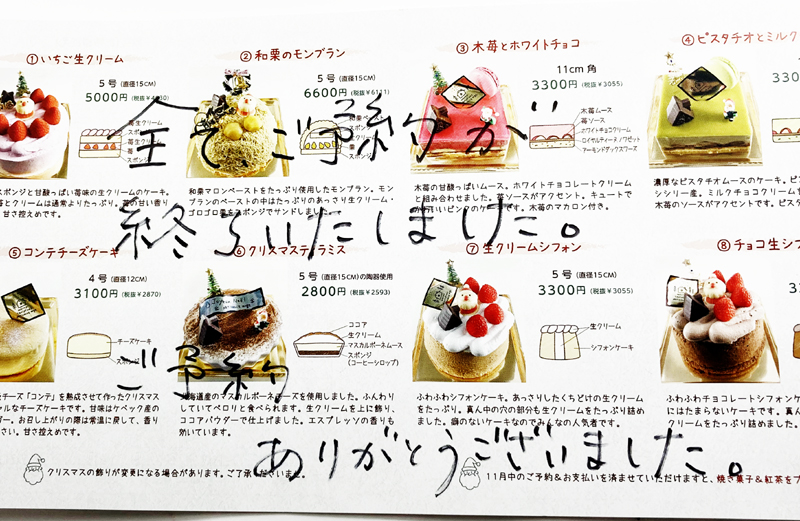 ①いちご生クリーム
5号(直径15CM)
5000円
生クリーム
②和栗のモンブラン
5号(直径15CM)
6600円(税抜¥6111)
③木苺とホワイトチョコ
11cm角
3300円(税抜¥3055)
木苺ムース
苺ソース
ホワイトチョコクリーム
ロイヤルティーヌノワゼット
アーモンドダックワーズ
④ピスタチオとミルク
330
全てご予約が
スポンジと甘酸っぱい苺味の生クリームのケーキ。
とクリームは通常よりたっぷり。苺の甘い香り
甘さ控えめです。
和栗マロンペーストをたっぷり使用したモンブラン。モン
ブランペーストの中はたっぷりのあっさり生クリーム・
ゴロゴロ栗をスポンジでサンドしました。
木苺の甘酸っぱいムース。ホワイトチョコレートクリーム
と組み合わせました。苺ソースがアクセント。キュートで
ピンクのケーキです。木苺のマカロン付き。
濃厚なピスタチオムースのケーキ。ピ
シシリー産。ミルクチョコクリーム
木苺のソースがアクセントです。ピスタ
終了いたしました。
⑤コンテチーズケーキ
4号(直径12CM)
3100円(税抜¥2870)
チーズケーキ
スポンジ
⑥クリスマスティラミス
5号(直径15CM)の陶器使用
2800円(税抜¥2593)
ココア
生クリーム
マスカルポーネムース
スポンジ
(コーヒーシロップ)
⑦生クリームシフォン
5号(直径15CM)
3300円(税抜¥3055)
生クリーム
シフォンケーキ
⑧チョコ生シフ
ご予約
チーズ「コンテ」を熟成させて作ったクリスマス
ルなチーズケーキです。甘味はケベック産の
ダー。お召し上がりの際は常温に戻して、香り
さい。甘さ控えめです。
北海道産のマスカルポーネチーズを使用しました。ふんわり
していてペロリと食べられます。生クリームを上に飾り、
ココアパウダーで仕上げました。エスプレッソの香りも
効いています。
ふわふわシフォンケーキ。あっさりしたくちどけの生クリーム
をたっぷり。真ん中の穴の部分も生クリームをたっぷり詰め
ました。癖のないケーキなのでみんなの人気者です。
ふわふわチョコレートシフォンケー
にはたまらないケーキです。真ん
クリームをたっぷり詰めました。
ありがとうございました。
クリスマスの飾りが変更になる場合があります。ご了承くださいませ。
11月中のご予約&お支払いを済ませていただけますと、焼き菓子&紅茶をプ